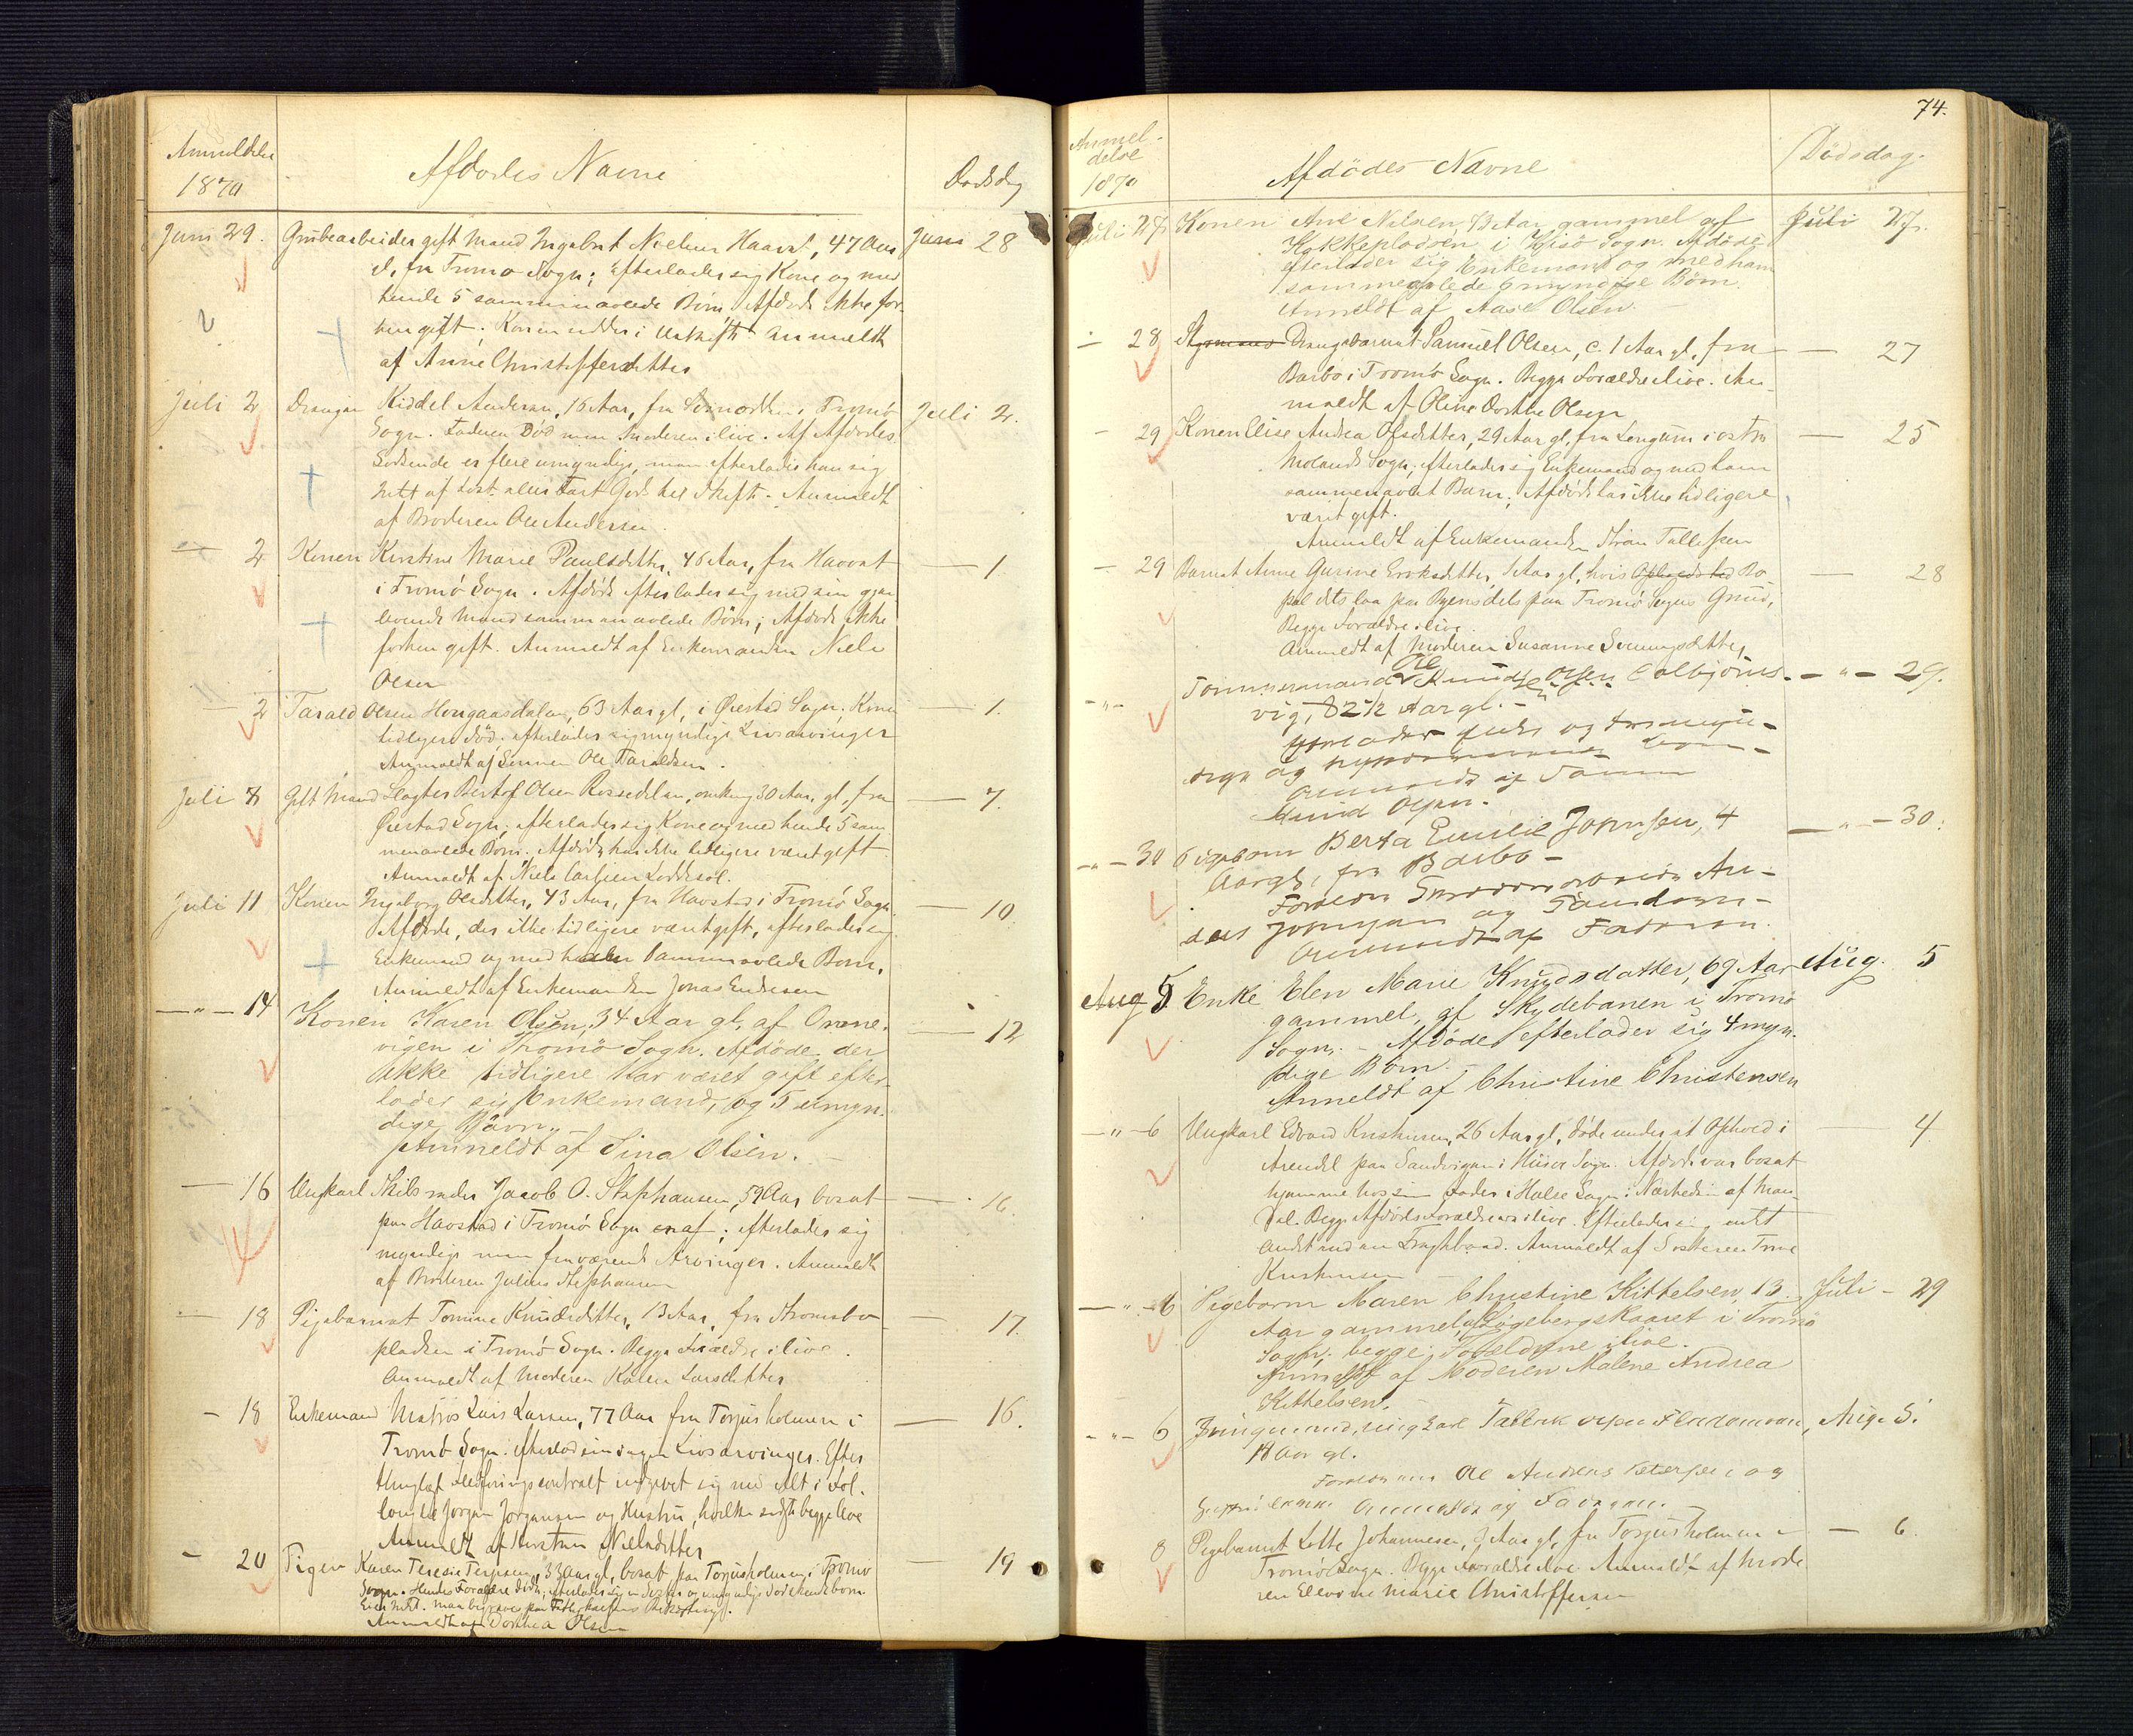 Anmeldelse
1870
Afdødes Navne
Dødsdag
Juni 29. Grubearbeider gift Mand Ingebret Nielsen Haavet, 47 Aar Juni 28
gl. fra Tromø Sogn; efterlader sig Kone og med
hende 5 sammenavlede Børn. Afdøde ikke for-
hen gift. Konen sidder i Uskiftet. Anmeldt
af Anne Christoffersdatter
Juli 2 Drengen Kiddel Andersen, 16 Aar, fra i Tromø Juli 2.
Sogn. Faderen Død men Moderen ilive. Af Afdødes
Sødskende er flere umyndige, men efterlader han sig
intet af Løst eller Fast Gods til Skifte. Anmeldt
af Broderen Ole Andersen.
— 2 Konen Kirstine Marie Paulsdatter, 46 Aar, fra Havvet — 1.
i Tromø Sogn. Afdøde efterlader sig med sin gjen-
levende Mand sammenavlede Børn; Afdøde ikke
forhen gift. Anmeldt af Enkemanden Niels
Olsen
— 2 Tarald Olsen Hougaasdalen, 63 Aar gl, i Øiestad Sogn. Kone — 1.
tidligere død; efterlader sig myndige Livsarvinger
Anmeldt af Sønnen Ole Taraldsen.
Juli 8 Gift Mand Slagter Bertof Olsen Rossedalen, omkring 30 Aar gl, fra — 7.
Øiestad Sogn; efterlader sig Kone og med hende 5 sam-
menavlede Børn. Afdøde har ikke tidligere været gift
Anmeldt af Niels Carlsen Løddesøl.
Juli 11 Konen Ingeborg Olsdatter, 43 Aar, fra Havstad i Tromø Sogn. — 10.
Afdøde, der ikke tidligere været gift, efterlader sig
Enkemand og med ham sammenavlede Børn.
Anmeldt af Enkemanden Jonas Endresen
— " — 14 Konen Karen Olsen, 34 Aar gl, af Omne- — 12
vigen i Thromø Sogn. Afdøde, der
ikke tidligere har været gift efter-
lader sig Enkemand, og 5 umyn-
dige Børn.
Anmeldt af Sina Olsen. —
— 16 Ungkarl Skibsreder Jacob O. Stephansen, 59 Aar bosat — 16.
paa Havstad i Tromø Sogn; efterlader sig
myndige men fraværende Arvinger. Anmeldt
af Broderen Julius Stephansen
— 18 Pigebarnet Tomine Knudsdatter, 13 Aar, fra Strømsbo- — 17.
pladsen i Tromø Sogn. Begge Forældre ilive.
Anmeldt af Moderen Karen Larsdatter
— 18 Enkemand Matros Lars Larsen, 77 Aar fra Torjusholmen i — 16.
Tromø Sogn. efterlod sin ingen Livsarvinger. Efter
thinglæst Ledføringscontract indgivet sig med Alt i Fol-
Jørgen Jørgensen og Hustru, hvilke sidste begge leve
Anmeldt af Kirsten Nielsdatter
— 20 Pigen Karen Teresie Terjesen, 33 Aar gl, bosat paa Torjusholmen i Tromø — 19
Sogn. Hendes Forældre døde; efterlader sig en og umyndige Sødskendebørn
Eier Intet. man begraves paa Fattigkassens Bekostning.
Anmeldt af Dorthea Olsen
74.
Anmel-
delse
1870
Afdødes Navne
Dødsdag.
Juli 27 Konen Ane Nielsen, 73 Aar gammel af Juli 27.
Kokkepladsen i Hisø Sogn. Afdøde
efterlader sig Enkemand og med ham
sammenavlede 6 myndige Børn.
Anmeldt af Aase Olsen.
— 28 Drengebarnet Samuel Olsen, c. 1 Aar gl, fra — 27
Barbo i Tromø Sogn. Begge Forældre ilive. An-
meldt af Oline Dorthe Olsen
— 29 Konen Elise Andrea Olsdatter, 29 Aar gl, fra Longum i østre — 25
Molands Sogn; efterlader sig Enkemand og med ham
sammenavlet Barn; Afdøde har ikke tidligere
været gift.
Anmeldt af Enkemanden Tellefsen
— 29 Barnet Anne Gurine Eriksdatter, 1 Aar gl, hvis Opholdssted Bo- — 28
pæl dels laa paa Byens dels paa Tromø Sogns Grund,
Begge Forældre ilive.
Anmeldt af Moderen Susanne Sveinungsdatter
— " — Tømmermand Ole Knudsen Colbjørns- — " — 29.
vig, 82½ Aar gl. —
efterlader Enke og
Anmeldt af Sønnen
Knud Olsen.
— " — 30 Pigebarn Berta Emilie Johnsen, 4 — " — 30.
Aargl, fra Barbo —
Forældre An-
ders Johnsen og
Anmeldt af Faderen.
Aug 5 Enke Elen Marie Knudsdatter, 69 Aar Aug. 5
gammel, af Skydebanen i Tromø
Sogn. — Afdøde efterlader sig 4 myn-
dige Børn. —
Anmeldt af Christine Christensen
— " — 6 Ungkarl Edvard Kristensen, 26 Aar gl, døde under et Ophold i — 4.
Arendal paa Sandvigen i Hisø Sogn. Afdøde var bosat
hjemme hos sin Fader i Halse Sogn i Nærheden af Man-
dal. Begge Afdødes Forældre ere ilive. Efterlader sig intet
Andet end en Anmeldt af Søsteren Trine
Kristensen
— " — 6 Pigebarn Maren Christine Kittelsen, 13 Juli — 29
Aar gammel, af Bøgebergskaaret i Tromø
Sogn, begge Forældrene ilive.
Anmeldt af Moderen Malene Andrea
Kittelsen.
— " — 6 Jungmand, ungkarl Tallak Olsen Flademoen, Aug. 5.
18 Aar gl.
Forældrene Ole Andreas Petersen og
Anmeldt af Faderen. —
8 Pigebarnet Lotte Johannesen, 9 Aar gl, fra Torjusholmen i — 6.
Tromø Sogn. Begge Forældre ilive. Anmeldt af Mode-
ren Elevine Marie Christoffersen